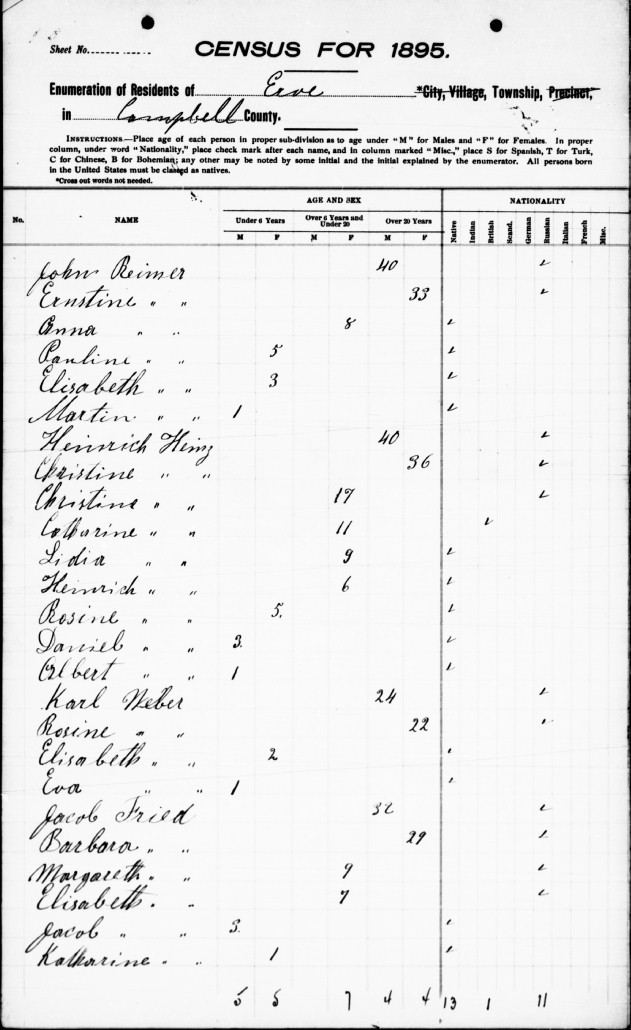 Sheet No.
CENSUS FOR 1895.
Enumeration of Residents of Eroe *City, Village, Township, Precinct,
in Campbell County.
INSTRUCTIONS—Place age of each person in proper sub-division as to age under "M" for Males and "F" for Females. In proper
column, under word "Nationality," place check mark after each name, and in column marked "Misc.," place S for Spanish, T for Turk,
C for Chinese, B for Bohemian; any other may be noted by some initial and the initial explained by the enumerator. All persons born
in the United States must be classed as natives.
*Cross out words not needed.
AGE AND SEX NATIONALITY
No. NAME Under 6 Years Over 6 Years and Under 20 Over 20 Years Native Indian British Scand. German Russian Italian French Misc.
M F M F M F
John Reimer 40 ✓
Ernstine " " 33 ✓
Anna " " 8 ✓
Pauline " " 5 ✓
Elisabeth " " 3 ✓
Martin " " 1 ✓
Heinrich Heinz 40 ✓
Christine " " 36 ✓
Christina " " 17 ✓
Catharine " " 11 ✓
Lidia " " 9 ✓
Heinrich " " 6 ✓
Rosine " " 5. ✓
Daniel " " 3. ✓
Albert " " 1 ✓
Karl Weber 24 ✓
Rosine " " 22 ✓
Elisabeth " " 2 ✓
Eva " " 1 ✓
Jacob Fried 32 ✓
Barbara " " 29 ✓
Margareth " " 9 ✓
Elisabeth " " 7 ✓
Jacob " " 3. ✓
Katharine " " 1 ✓
5 5 7 4 4 13 1 11